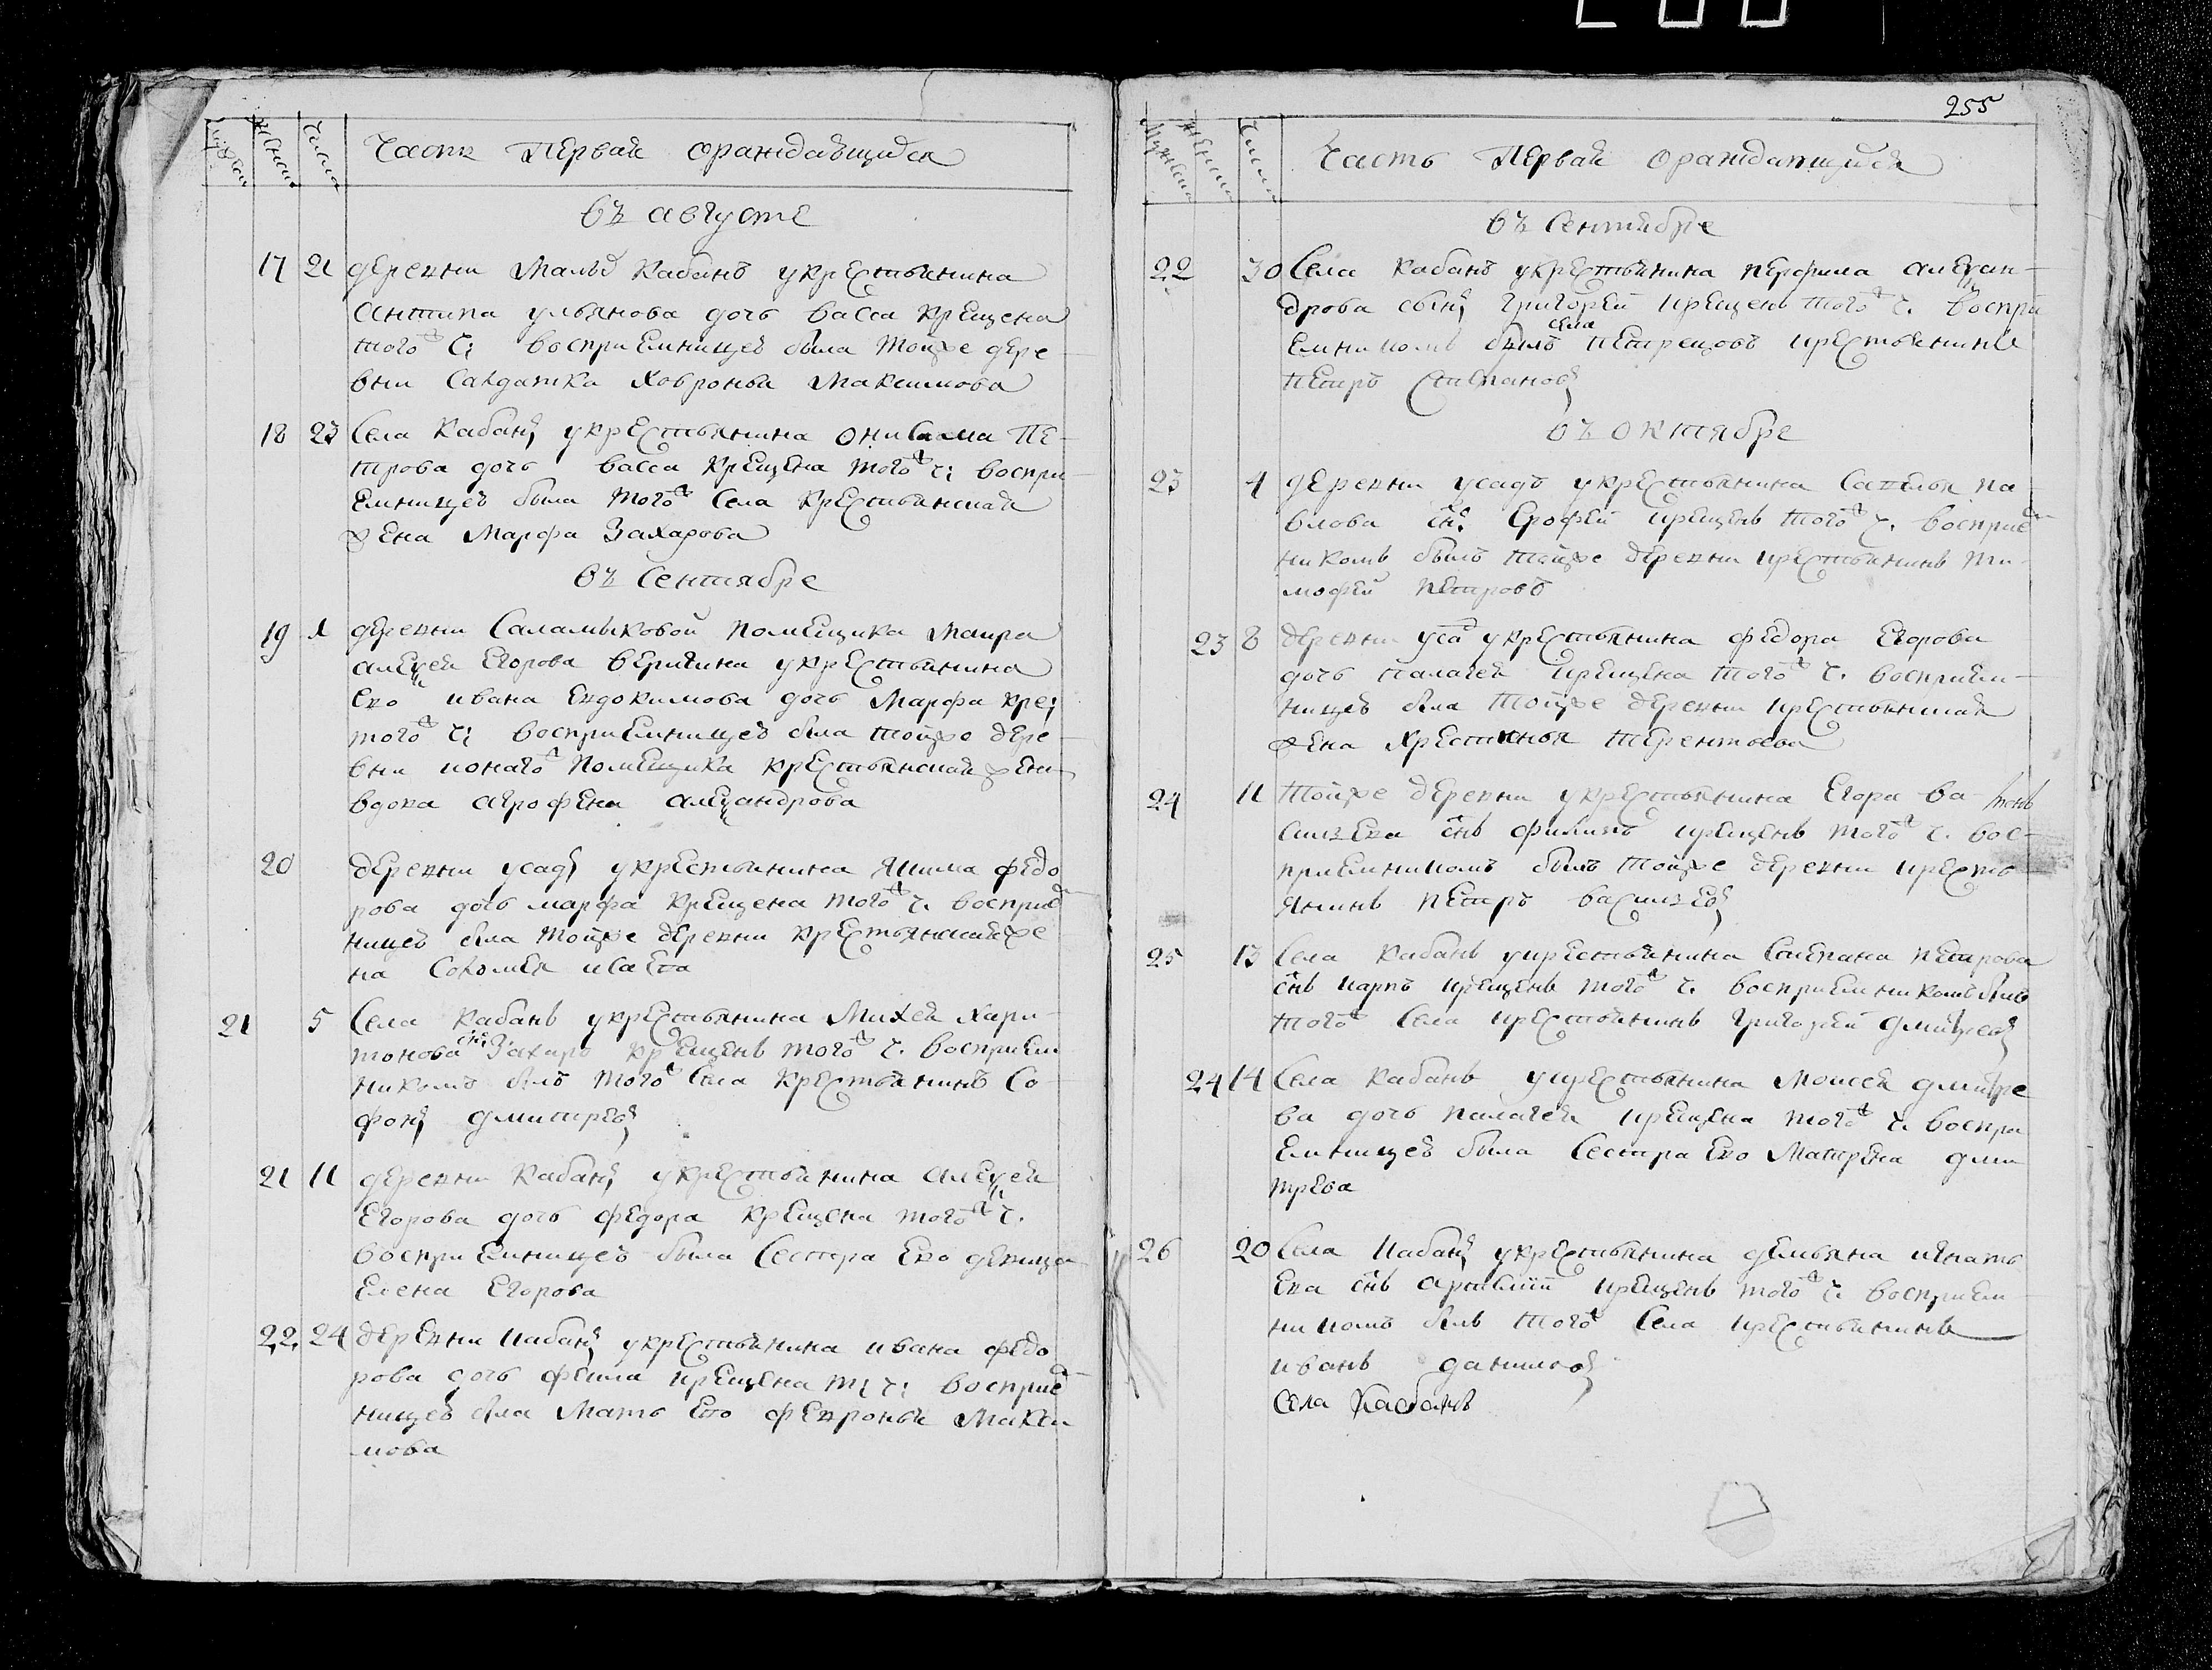 Часть Первая ораждающихся
въ августе
17 21 деревни Малы Кабанъ укрестьянина
Антипа ульянова дочь васса крещена
того ж ч: восприемницею была тойже дере
вни Салдатка Ховронья Максимова
18 23 Села Кабанъ укрестьянина онисима Пе
трова дочь васса крещена того ж ч: воспри
емницею была того ж Села крестьянская
жена Марфа Захарова
въ Сентябре
19 1 деревни Саламыковой помещика Маира
алексея Егорова укрестьянина
Ево ивана Евдокимова дочь Марфа кре:
того ж ч: восприемницею была тойже дере
вни и онаго ж помещика крестьянская жен
вдова агрофена александрова
20 деревни усадъ укрестьянина якима федо
рова дочь марфа крещена того ж ч. восприем
ницею была тойже деревни крестьянская же
на Соломея исаева
21 5 Села Кабанъ укрестьянина Михея Хари
тонова снъ Захаръ крещенъ того ж ч. восприем
никомъ былъ того ж Села крестьянинъ Со
фонъ дмитревъ
21 11 деревни Кабанъ укрестьянина алексея
Егорова дочь федора крещена того ж ч.
восприемницею была Сестра Ево девица
Елена Егорова
22 24 деревни Кабанъ укрестьянина ивана федо
рова дочь фекла крещена т: ч: восприем
ницею была Мать Ево февронья Макси
мова
255
Часть Первая ораждающихся
въ Сентябре
22 30 Села Кабанъ укрестьянина перфила алексан
дрова сынъ григорей крещенъ того ж ч. воспри
емникомъ былъ села петрецовъ крестьянинъ
петръ Степановъ
въ октябре
23 4 деревни усадъ укрестьянина Савелья па
влова снъ Ерофей крещенъ того ж ч. восприем
никомъ былъ тойже деревни крестьянинъ ти
мофей петровъ
23 8 деревни усадъ укрестьянина федора Егорова
дочь палагея крещена того ж ч. восприем
ницею была тойже деревни крестьянская
жена Хрестинья терентьева
24 11 тойже деревни укрестьянина Егора ва
сильева снъ филипъ крещенъ того ж ч. вос
приемникомъ былъ тойже деревни кресть
янинъ петръ васильевъ
25 13 Села Кабанъ укрестьянина Степана петрова
снъ карпъ крещенъ того ж ч. восприемникомъ былъ
того ж Села крестьянинъ григорей дмитревъ
24 14 Села Кабанъ укрестьянина Моисея дмитре
ва дочь палагея крещена того ж ч. воспри
емницею была Сестра Ево Матрена дми
трева
26 20 Села Кабанъ укрестьянина демьяна игнать
ева снъ артемий крещенъ того ж ч. восприем
никомъ былъ того ж Села крестьянинъ
иванъ даниловъ
Села Кабанъ